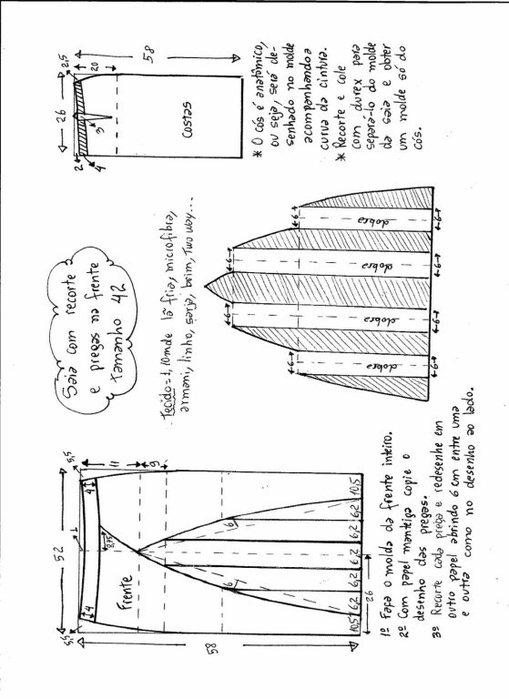 52
1
4
4
11
9
Frente
58
6
6
10,5
6,2
6,2
6,2
6,2
6,2
10,5
26
1º Faça o molda da frente inteiro.
2º Com papel manteiga copie o
desenho das pregas.
3º Recorte cada prega e redesenhe em
outro papel abrindo 6 cm entre uma
e outra como no desenho ao lado.
Saia com recorte
e pregas na frente
tamanho 42
Tecido = 1,10m de lã fria, microfibra,
armani, linho, sarja, brim, two way...
6
6
6
6
dobra
dobra
dobra
dobra
6
6
6
6
26
2,5
20
2
4
3
58
Costas
* O cós é anatômico,
ou seja, será de-
senhado no molde
acompanhando a
curva da cintura.
* Recorte e cole
com durex para
separá-lo do molde
da saia e obter
um molde só do
cós.